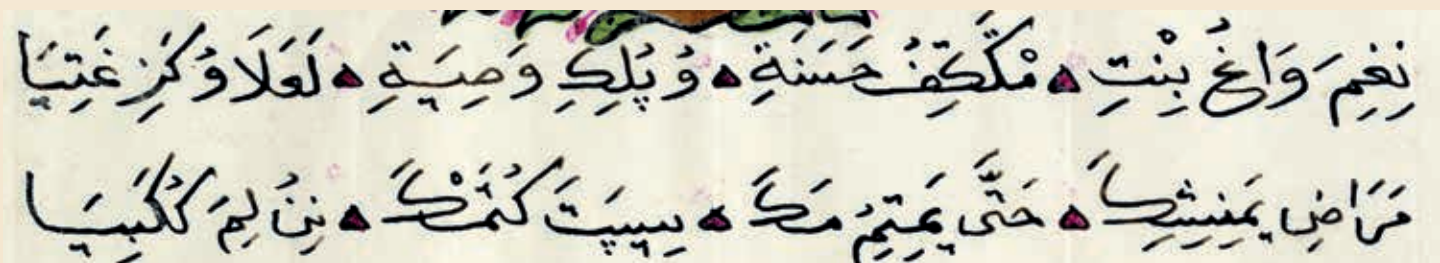 نِغِمَ وَاغُ بِنْتِ ▲ مْكَّتِفُ حَسَنَةِ ▲ وُپُلِكِ وَصِيَةِ ▲ لَعَلَا وُكَزِغَتِيَا
مَرَاضِ يَمِنِشِكَ ▲ حَتَّى يَمِتِمُ مَكَ ▲ سِيپَتَ كُتَمْكَ ▲ نِنُ لِمَ كُكَبِيَا